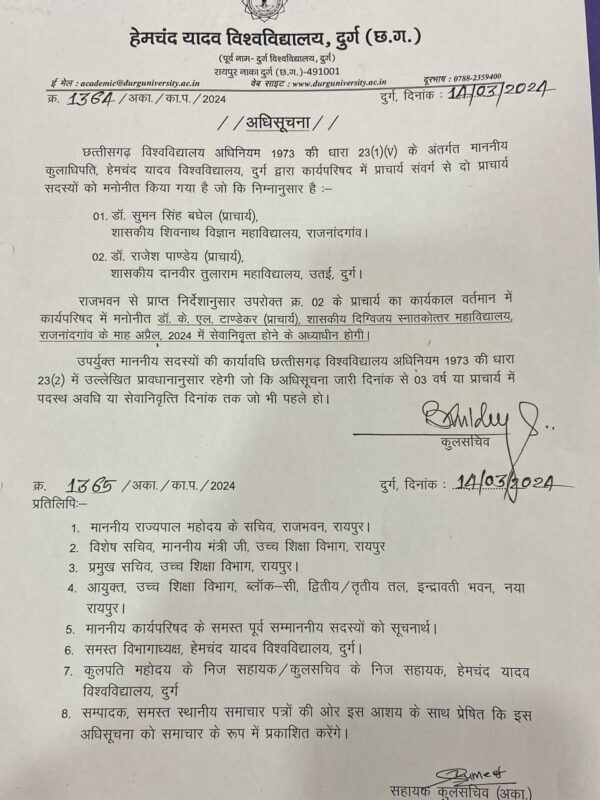 हेमचंद यादव विश्वविद्यालय, दुर्ग (छ.ग.)
(पूर्व नाम- दुर्ग विश्वविद्यालय, दुर्ग)
रायपुर नाका दुर्ग (छ.ग.)-491001
ई मेल : academic@durguniversity.ac.in वेब साइट : www.durguniversity.ac.in दूरभाष : 0788-2359400
क्र. 1364 /अका./का.प./2024 दुर्ग, दिनांक : 14/03/2024
//अधिसूचना//
छत्तीसगढ़ विश्वविद्यालय अधिनियम 1973 की धारा 23(1)(V) के अंतर्गत माननीय
कुलाधिपति, हेमचंद यादव विश्वविद्यालय, दुर्ग द्वारा कार्यपरिषद में प्राचार्य संवर्ग से दो प्राचार्य
सदस्यों को मनोनीत किया गया है जो कि निम्नानुसार है :–
01. डॉ. सुमन सिंह बघेल (प्राचार्य),
शासकीय शिवनाथ विज्ञान महाविद्यालय, राजनांदगांव।
02. डॉ. राजेश पाण्डेय (प्राचार्य),
शासकीय दानवीर तुलाराम महाविद्यालय, उतई, दुर्ग।
राजभवन से प्राप्त निर्देशानुसार उपरोक्त क्र. 02 के प्राचार्य का कार्यकाल वर्तमान में
कार्यपरिषद में मनोनीत डॉ. के. एल. टाण्डेकर (प्राचार्य), शासकीय दिग्विजय स्नातकोत्तर महाविद्यालय,
राजनांदगांव के माह अप्रैल, 2024 में सेवानिवृत्त होने के अध्याधीन होगी।
उपर्युक्त माननीय सदस्यों की कार्यावधि छत्तीसगढ़ विश्वविद्यालय अधिनियम 1973 की धारा
23(2) में उल्लेखित प्रावधानानुसार रहेगी जो कि अधिसूचना जारी दिनांक से 03 वर्ष या प्राचार्य में
पदस्थ अवधि या सेवानिवृत्ति दिनांक तक जो भी पहले हो।
कुलसचिव
क्र. 1365 /अका./का.प./2024 दुर्ग, दिनांक : 14/03/2024
प्रतिलिपि:–
1. माननीय राज्यपाल महोदय के सचिव, राजभवन, रायपुर।
2. विशेष सचिव, माननीय मंत्री जी, उच्च शिक्षा विभाग, रायपुर
3. प्रमुख सचिव, उच्च शिक्षा विभाग, रायपुर।
4. आयुक्त, उच्च शिक्षा विभाग, ब्लॉक–सी, द्वितीय/तृतीय तल, इन्द्रावती भवन, नया
रायपुर।
5. माननीय कार्यपरिषद के समस्त पूर्व सम्माननीय सदस्यों को सूचनार्थ।
6. समस्त विभागाध्यक्ष, हेमचंद यादव विश्वविद्यालय, दुर्ग।
7. कुलपति महोदय के निज सहायक/कुलसचिव के निज सहायक, हेमचंद यादव
विश्वविद्यालय, दुर्ग
8. सम्पादक, समस्त स्थानीय समाचार पत्रों की ओर इस आशय के साथ प्रेषित कि इस
अधिसूचना को समाचार के रूप में प्रकाशित करेंगे।
सहायक कुलसचिव (अका.)